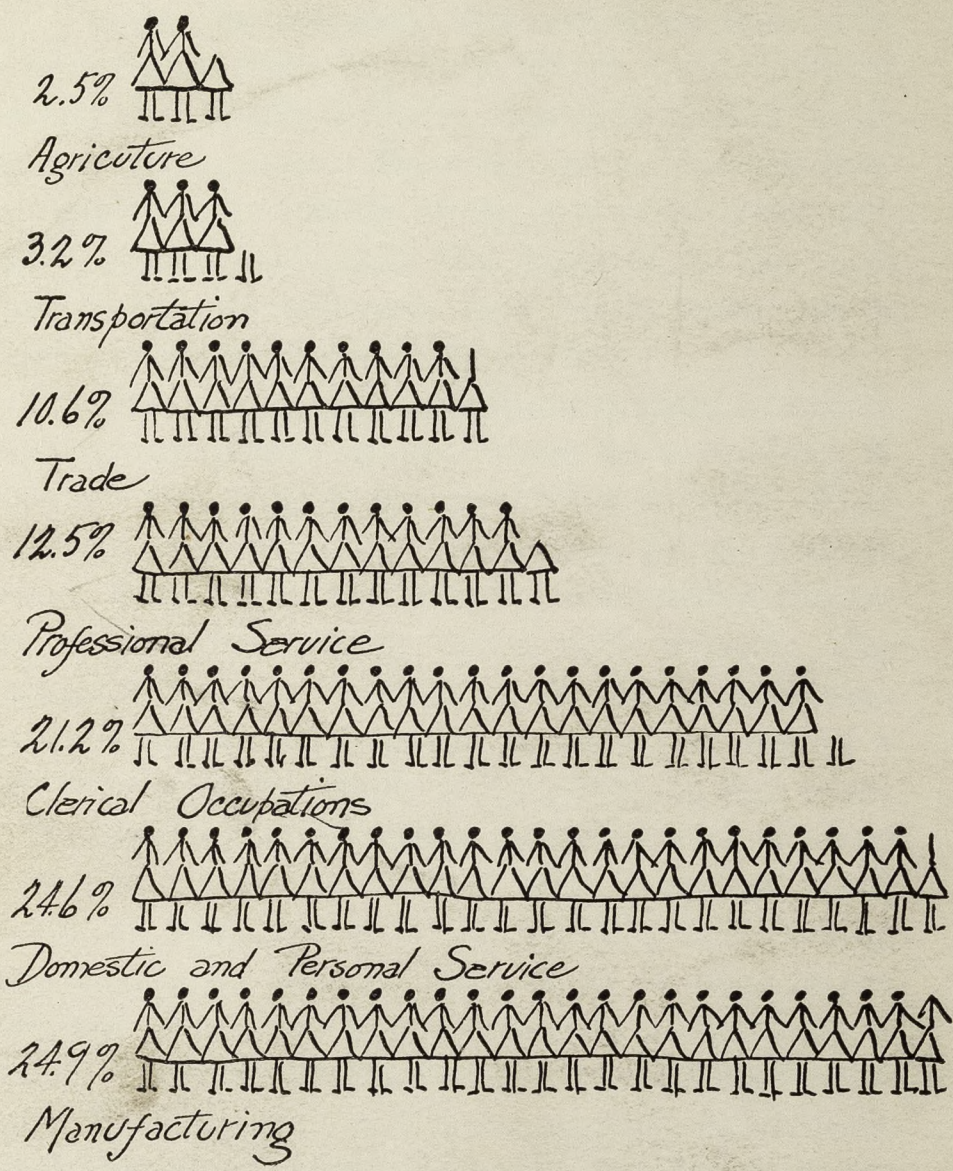 2.5%
Agricuture
3.2%
Transportation
10.6%
Trade
12.5%
Professional Service
21.2%
Clerical Occupations
24.6%
Domestic and Personal Service
24.9%
Manufacturing